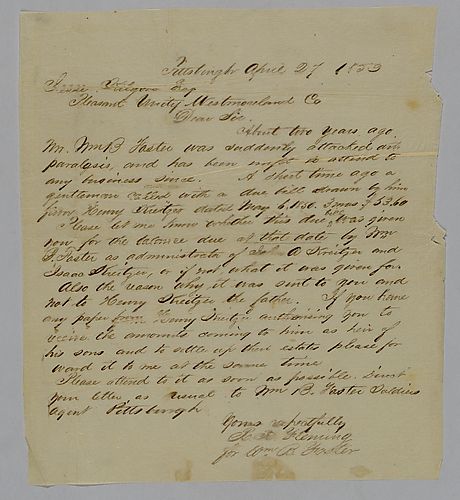 Pittsburgh April 27 1853
Esq
Pleasant Unity Westmoreland Co
Dear Sir.
About two years ago
Mr. Wm B Foster was suddenly attacked with
paralysis, and has been unfit to attend to
any business since. A short time ago a
gentleman called with a due bill drawn by him
from Henry dated May 6 1850. 3 mos. for 53.60
Please let me know whether this due bill was given
you for the balance due at that date by Wm
B. Foster as administrator of John A and
Isaac or if not what it was given for.
Also the reason why it was sent to you and
not to Henry the father. If you have
any paper from Henry authorising you to
receive the amounts coming to him as heir of
his sons and to settle up their estates please for
ward it to me at the same time
Please attend to it as soon as possible. Direct
your letter as usual to Wm B. Foster Soldiers
agent Pittsburgh
Yours respectfully
Fleming
for Wm B. Foster